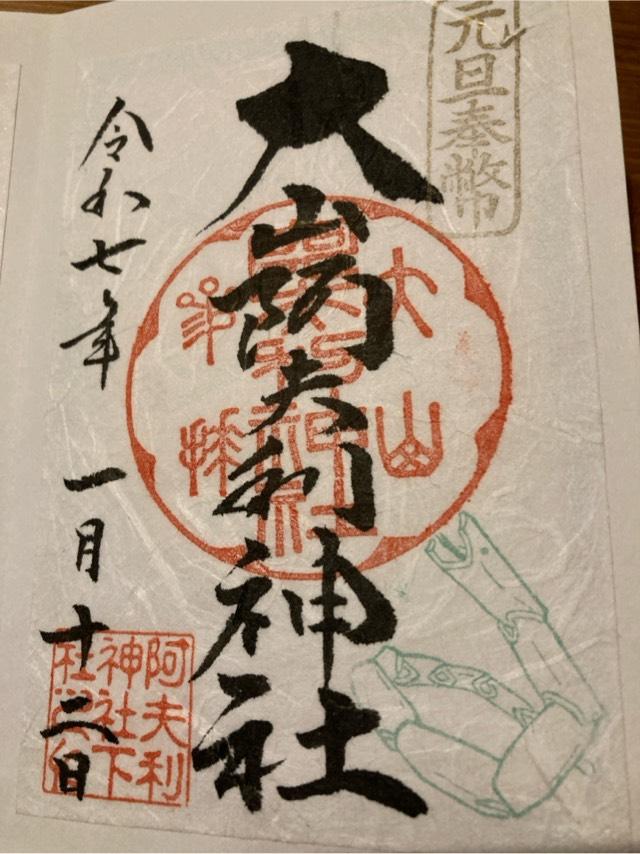 元旦奉幣
大山阿夫利神社
大山
阿夫利神社
参拝
令和七年
一月十二日
阿夫利
神社下
社